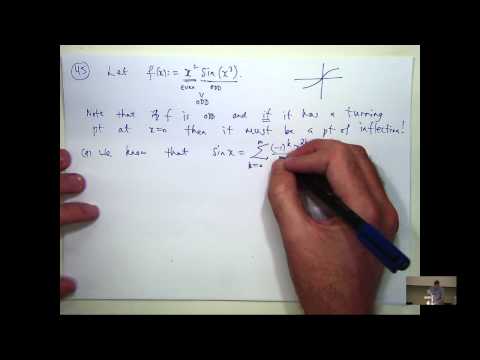 45 Let f(x) := x² sin(x³).
EVEN ODD
ODD
Note that if f is ODD and if it has a turning
pt at x=0 then it must be a pt of inflection!
(a) We know that sin x = ∑ k=0 (-1)^k x